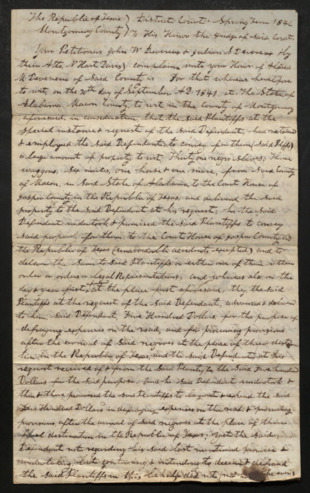 The Republic of Texas } District Court Spring Term 184
Montgomery County } To His Honor the Judge of said Court
Your Petitioners John W. Simmons & Julien S. Devereux by
their Atto. complains unto your Honor of
M Devereux of said County For that whereas heretofore
to wit on the day of September A.D. 1841, at the State of
Alabama Macon County, to wit in the County of Montgomery
aforesaid, in consideration that the said Plaintiffs at the
special instance & request of the said Defendant, had retained
& employed the said Defendant to convey for them said Plffs
a large amount of property to wit, Thirty one negro slaves, Three
waggons, six mules, one horse & one mare, from said County
of Macon, in said State of Alabama to the Court House of
Jasper County in the Republic of Texas and delivered the said
property to the said Defendant at his request, he the said
Defendant undertook & promised the said Plaintiffs to convey
said property for them to the Court House of Jasper County in
the Republic of Texas (unavoidable accidents excepted) and to
deliver the same to said Plaintiffs or either one of them or their
order or orders or legal Representatives, and whereas also on the
day & year first & at the place first aforesaid they the said
Plaintiffs at the request of the said Defendant, advanced & delivered
to him said Defendant, Five Hundred Dollars for the purpose of
defraying expenses on the road, and for procuring provisions
after the arrival of said negroes at the place of
in the Republic of Texas, and the said Defendant at his
request received of & from the said Plaintiffs the said Five hundred
Dollars for the said purpose, and he said Defendant undertook &
then & there promised the said Plaintiffs to lay out & expend the said
Five Hundred Dollars in defraying expenses on the road & procuring
provisions after the arrival of said negroes at the place of their
destination in the Republic of Texas; Yet the said
Defendant not regarding his said last mentioned promises &
undertaking, but contriving & intending to deceive & defraud
the said Plaintiffs in this behalf did not